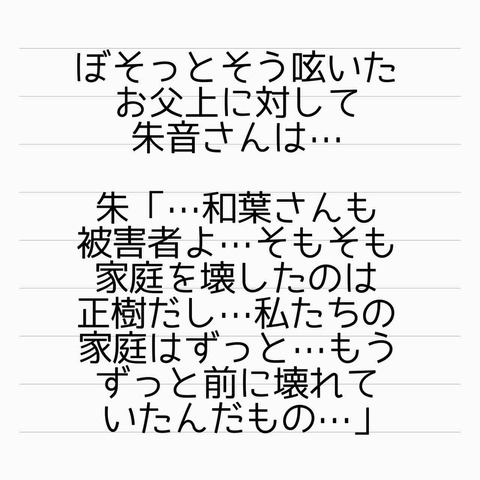 ぼそっとそう呟いた
お父上に対して
朱音さんは…
朱「…和葉さんも
被害者よ…そもそも
家庭を壊したのは
正樹だし…私たちの
家庭はずっと…もう
ずっと前に壊れて
いたんだもの…」